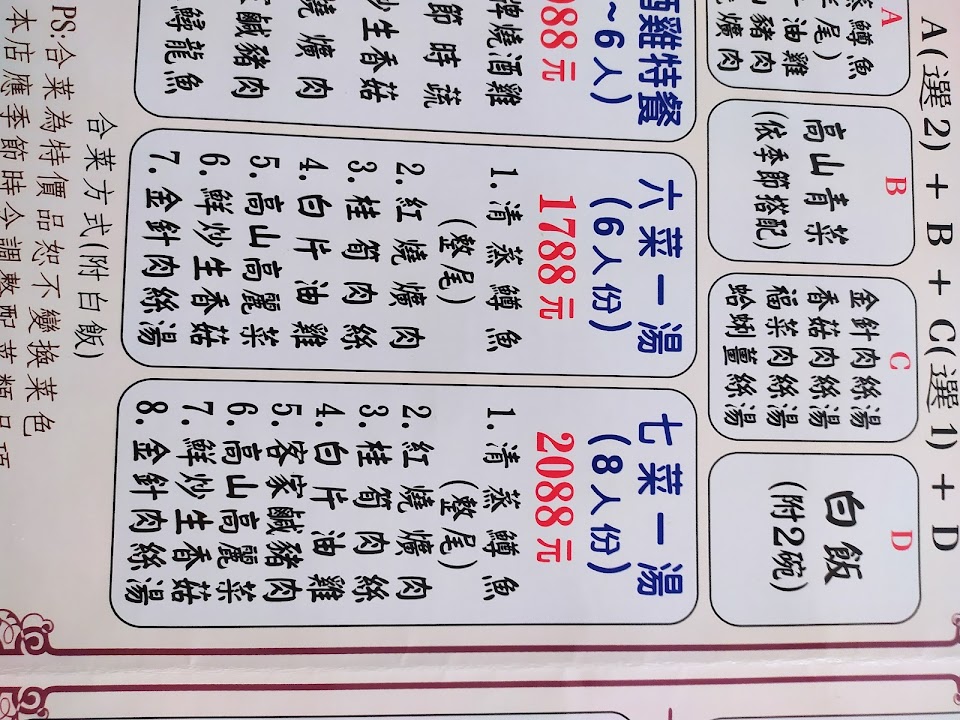 A(選2) + B + C(選1) + D
A
魚
尾)
油雞
豬肉
爌肉
B
高山青菜
(依季節搭配)
C
金針肉絲湯
香菇肉絲湯
福菜肉絲湯
蛤蜊薑絲湯
D
白飯
(附2碗)
酒雞特餐
~6人)
088元
牌燒酒雞
節時蔬
炒生香菇
燒爌肉
家鹹豬肉
鱘龍魚
六菜一湯
(6人份)
1788元
1.清蒸鱒魚
(整尾)
2.紅燒爌肉
3.桂筍肉絲
4.白片油雞
5.高山高麗菜
6.鮮炒生香菇
7.金針肉絲湯
七菜一湯
(8人份)
2088元
1.清蒸鱒魚
(整尾)
2.紅燒爌肉
3.桂筍肉絲
4.白片油雞
5.客家鹹豬肉
6.高山高麗菜
7.鮮炒生香菇
8.金針肉絲湯
合菜方式(附白飯)
PS:合菜為特價品恕不變換菜色
本店應季節時令調整配菜類品項